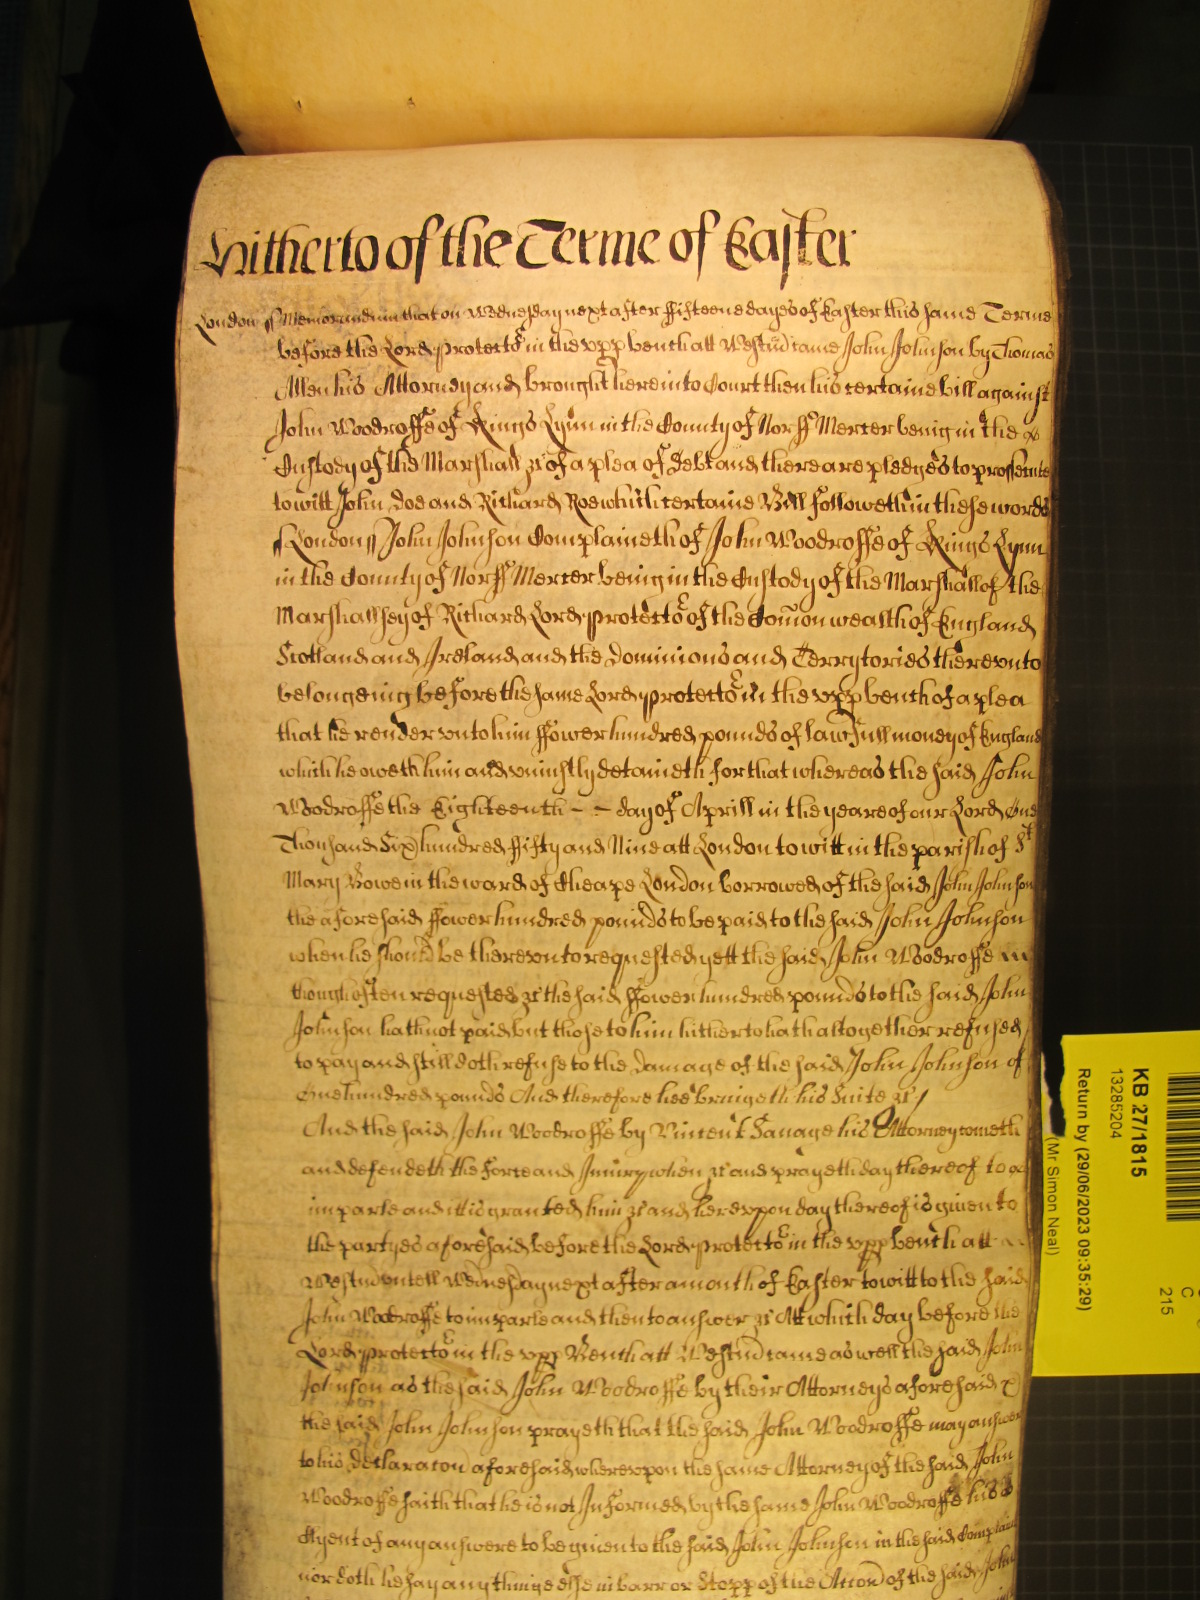 Hitherto of the Terme of Easter
London ss Memorandum that on Wednesday next after ffifteene dayes of Easter this same Terme
before the Lord Protector in the upp bench att Westm̃ came John Johnson by Thomas
Allen his Attorney and brought here into Court then his certaine bill against
John Woodroffe of Kings Lynn in the County of Norff Mercer being in the
Custody of the Marshall &c of a plea of debt and there are pledges to prossecute
to witt John Doe and Richard Roe which certaine Bill followeth in these words
ss London ss John Johnson Complaineth of John Woodroffe of Kings Lynn
in the County of Norff Mercer being in the Custody of the Marshall of the
Marshallsey of Richard Lord Protector of the Com̃on wealth of England
Scotland and Ireland and the Dominions and Terrytories thereunto
belongeing before the same Lord Protector in the upp bench of a plea
that he render unto him ffower hundred pounds of lawfull money of England
which he oweth him and uniustly detaineth for that whereas the said John
Woodroffe the Eighteenth – – day of Aprill in the yeare of our Lord One
Thousand Six hundred ffifty and Nine att London to witt in the parish of St
Mary Bowe in the ward of Cheape London borrowed of the said John Johnson
the aforesaid ffower hundred pounds to be paid to the said John Johnson
when he should be thereunto requested yett the said John Woodroffe
though often requested &c the said ffower hundred pounds to the said John
Johnson hath not paid but those to him hitherto hath altogether refused
to pay and still doth refuse to the damage of the said John Johnson of
One hundred pounds And therefore hee bringeth his Suite &c /
And the said John Woodroffe by Vincent Savage his Attorney cometh
and defendeth the force and Iniury when &c and prayeth day thereof to
imparle and itt is granted him &c and hereupon day thereof is given to
the partyes aforesaid before the Lord Protector in the upp bench att
Westm̃ untill Wednesday next after a month of Easter to witt to the said
John Woodroffe to imparle and then to answer &c Att which day before the
Lord Protector in the upp Bench att Westm̃ came as well the said John
Johnson as the said John Woodroffe by their Attorneys aforesaid
the said John Johnson prayeth that the said John Woodroffe may answer
to his declaracon aforesaid whereupon the same Attorney of the said John
Woodroffe saith that he is not Informed by the same John Woodroffe his
Clyent of any answere to be given to the said John Johnson in the said Complaint
nor doth he say any thinge else in barr or stopp of the Accon of the said John
KB 27/1815
13285204
Return by (29/06/2023 09:35:29)
(Mr Simon Neal)
C
215